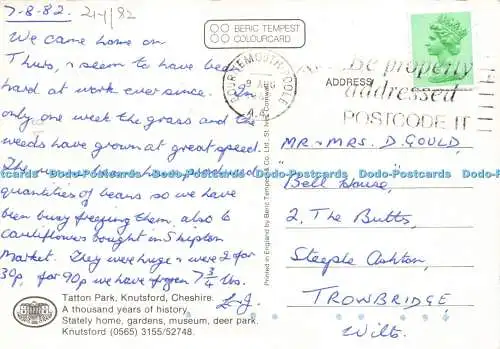 7-8-82. 21-1/82
BERIC TEMPEST
COLOURCARD
We came home on
Thurs, & seem to have been
hard at work ever since. In
only one week the grass and the
weeds have grown at great speed.
The runner beans have produced
quantities of beans so we have
been busy freezing them, also to
cauliflowers bought in Shipton
Market. They were huge & were 2 for
30p, for 90p we have frozen 7 3/4 lbs.
L-J.
Tatton Park, Knutsford, Cheshire.
A thousand years of history.
Stately home, gardens, museum, deer park.
Knutsford (0565) 3155/52748.
Printed in England by Beric Tempest
BOURNEMOUTH POOLE
9 AUG
Be properly
addressed
POSTCODE IT
ADDRESS
MR & MRS. D. GOULD,
Bell House,
2. The Butts,
Steeple Ashton,
TROWBRIDGE,
Wilts.
Dodo-Postcards Dodo-Postcards Dodo-Postcards Dodo-Postcards Dodo-Postcards Dodo-Postcards